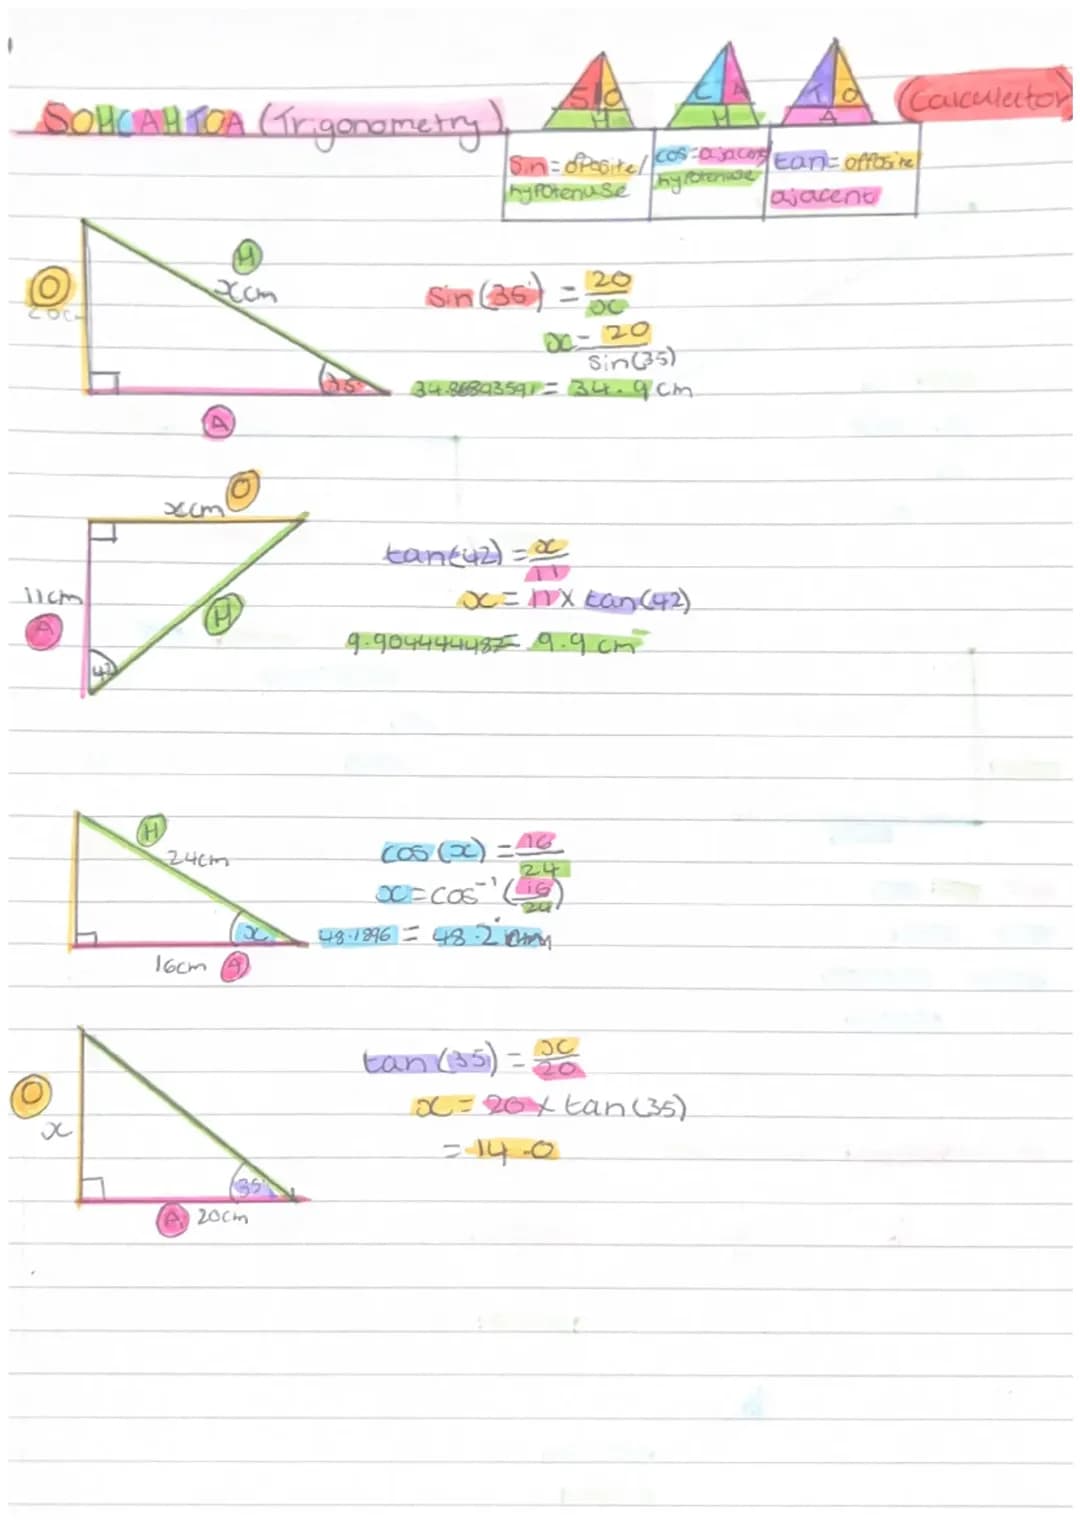 SOHCAHTOA (Trigonometry)
S O H
C A H
T O A
(Calculator
Sin = opposite/
hypotenuse
cos = ajacent/
hypotenuse
tan = opposite
ajacent
H
xcm
O
20cm
35°
A
Sin(35°) = 20/x
x = 20/sin(35)
34.86893591 = 34.9 cm
O
xcm
11cm
A
H
42
tan(42) = x/11
x = 11 x tan(42)
9.904444487 = 9.9 cm
H
24cm
x
16cm A
cos(x) = 16/24
x = cos⁻¹(16/24)
48.1896 = 48.2°
O
x
35°
A 20cm
tan(35) = x/20
x = 20 x tan(35)
= 14.0